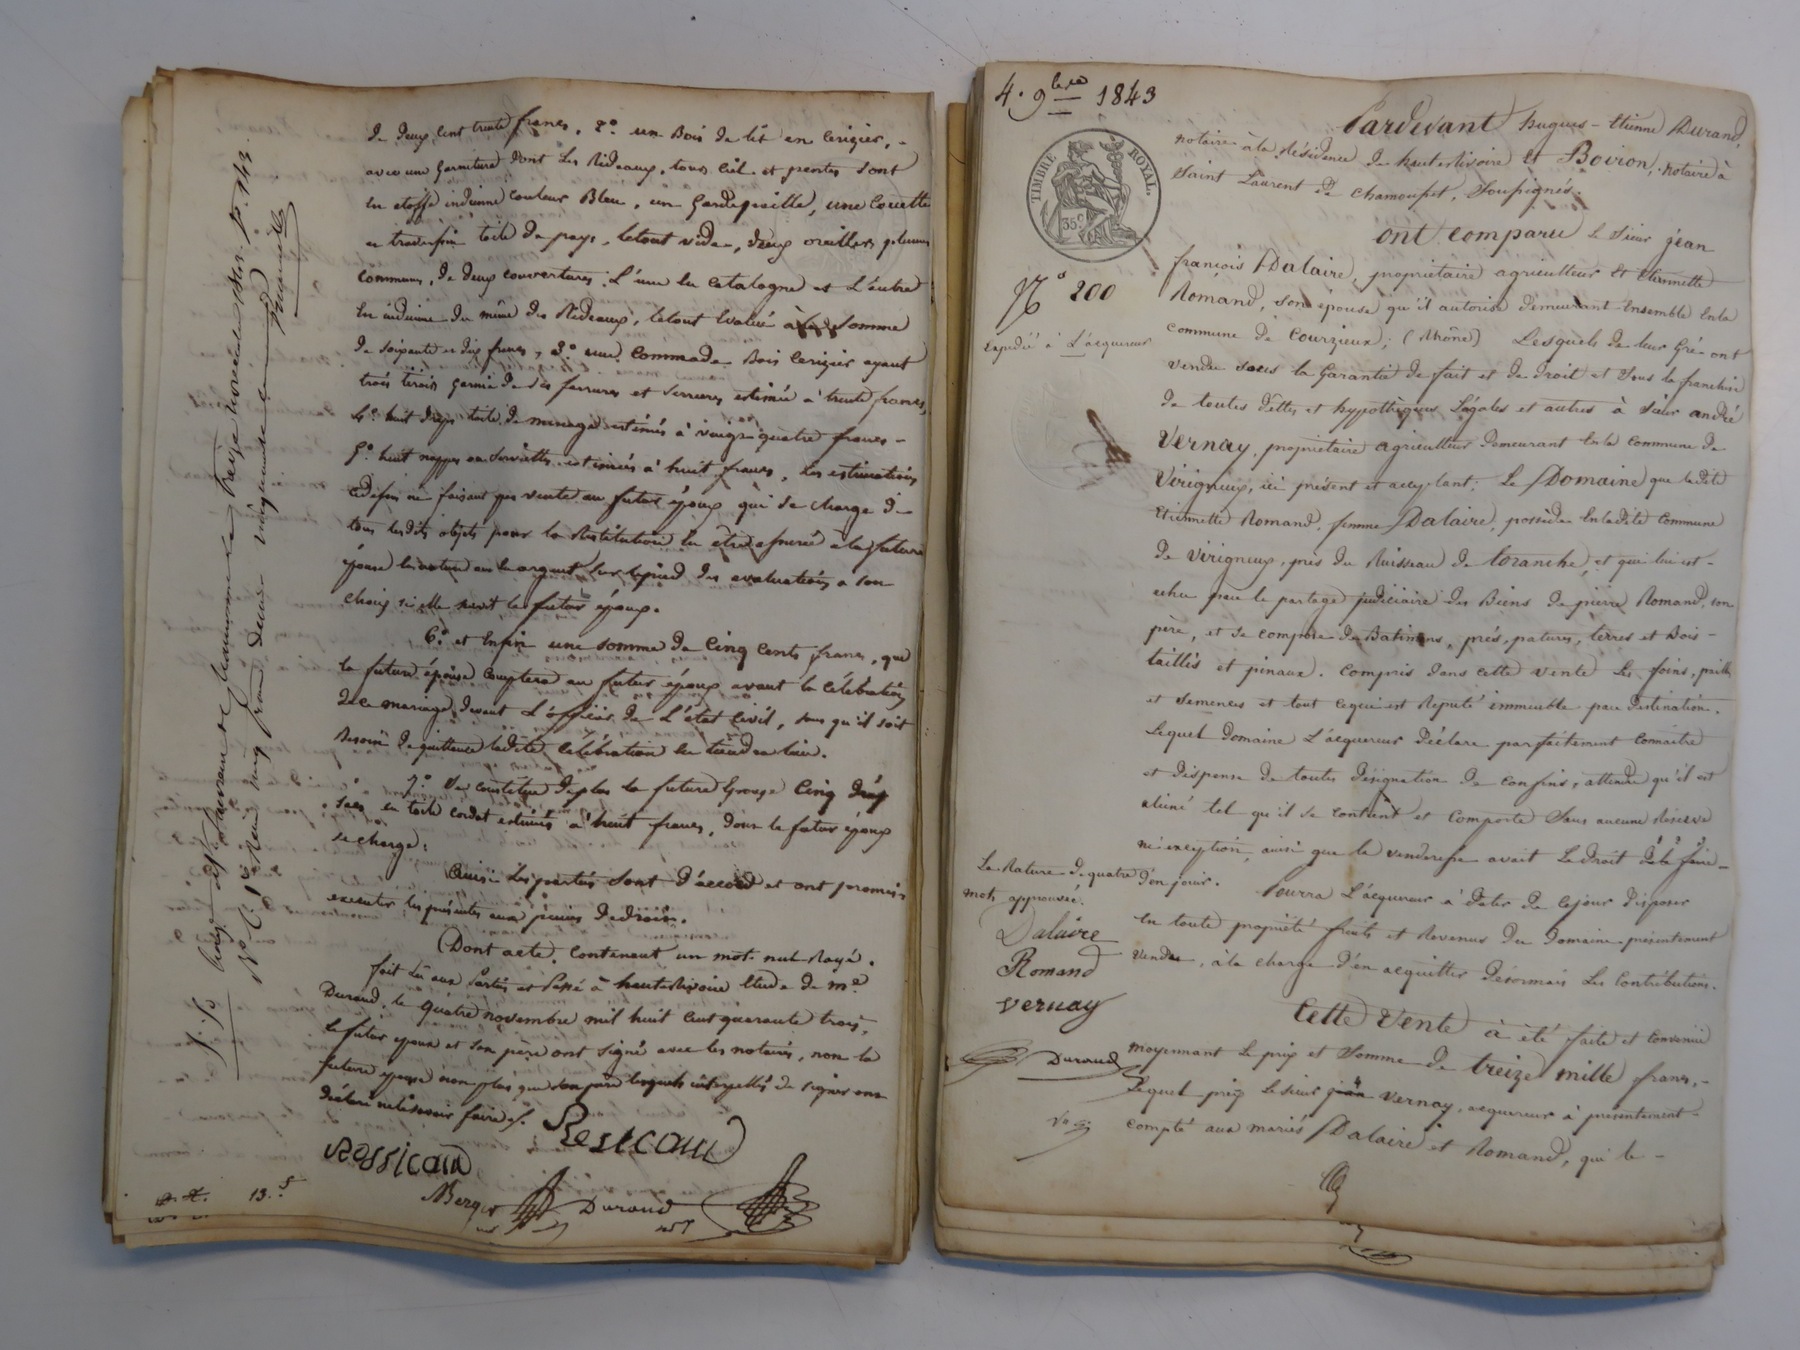 de deux cent trente francs, 2.° un Bois de lit en Cerizier, -
avec une garniture dont les Rideaux, tour, Ciel et pentes sont
en étoffe indienne couleur Bleu, un Gardepaille, une Couette
et traversin toile de pays, le tout vide, deux oreillers plumes
communes, de deux couvertures, L'une en Catalogne et L'autre
en indienne du même des Rideaux, le tout Evalué à la Somme
de soixante et dix francs, 3.° une Commode Bois Cerizier ayant
trois tiroirs garnie de ses ferrures et serrures estimée à trente francs,
4.° huit draps toile de menage estimés à vingt-quatre francs -
5.° huit nappes ou Serviettes estimées à huit francs, Les estimations
cidessus ne faisant pas vente au futur époux qui se charge de
tous lesdits objets pour la Restitution en être opérée à la future
épouse en nature ou en argent sur le pied des evaluations à son
choix si elle survit le futur époux.
6.° et Enfin une somme de Cinq Cents francs, que
la future épouse comptera au futur époux avant la Célébration
de ce mariage devant L'officier de L'état Civil, sans qu'il soit
Besoin de quittance ladite Célébration en tiendra lieu.
7.° Se constitue de plus la future Epouse Cinq draps
en toile estimés à huit francs, dont le futur époux
se charge.
Ainsi Les parties sont d'accord et ont promis
executer les présentes aux peines de droit.
Dont acte, Contenant un mot nul Rayé.
fait Lû aux Parties et Passé à hauterivoire Etude de M.e
Durand, le quatre novembre mil huit Cent quarante trois,
le futur époux et son père ont signé avec les notaires, non la
future épouse non plus que son père lesquels interpellés de signer ont
déclaré ne le savoir faire.
Ressicaud
Rossicaud
Berger
Durand
13.
4. 9bre 1843
TIMBRE ROYAL.
35c
Pardevant hugues-Etienne Durand,
notaire à la Résidence de hauterivoire Et Boiron, notaire à
Saint Laurent de Chamousset, Soussignés.
Ont Comparu le sieur jean
françois Dalaire, propriétaire agriculteur Et Etiennette
Romand, son épouse qu'il autorise demeurant Ensemble En la
Commune de Courzieux, (Rhône) Lesquels de leur Gré ont
N° 200
Expédié à L'acquereur
vendu sous la Garantie de fait et de droit et Sous la franchise
de toutes dettes et hypothèques Légales et autres à Sieur andré
Vernay, propriétaire agriculteur demeurant En la Commune de
Virigneux, ici présent et acceptant; Le Domaine que ladite
Etiennette Romand, femme Dalaire, possède En ladite Commune
de Virigneux, près du Ruisseau de toranche, et qui lui est -
echu par le partage judiciaire des Biens de pierre Romand, son
père, et se compose de Batimens, prés, patures, terres et Bois -
taillis et pinaux. Compris dans cette vente Les foins, pailles
et semences et tout ce qui est Réputé immeuble par destination.
Lequel Domaine L'acquereur déclare parfaitement Connaitre
et dispense de toutes désignation de confins, attendu qu'il est
aliéné tel qu'il se contient et Comporte Sans aucune Réserve
ni exception, ainsi que la venderesse avait Le droit de le faire -
d'en jouir. Pourra L'acquereur à dater de ce jour disposer
La Rature de quatre
mots approuvée.
Dalaire
Romand
Vernay
Durand
En toute propriété fruits et Revenus du Domaine présentement
vendu, à la charge d'en acquitter désormais Les Contributions.
Cette Vente à été faite et Convenue
moyennant Le prix et Somme de treize mille francs, -
Lequel prix Le sieur Vernay, acquereur à présentement -
compté aux mariés Dalaire et Romand, qui le -